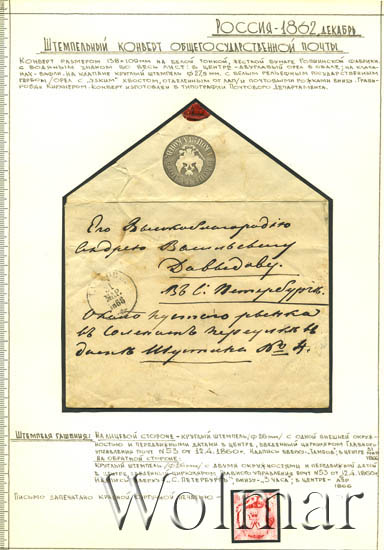 Россия-1862, декабрь
Штемпельный конверт общегосударственной почты.
Конверт размером 138×109мм на белой тонкой, жесткой бумаге Головинской фабрики
с водяным знаком во весь лист: в центре - двуглавый орел в овале; на клапа-
нах - вифм. На клапане круглый штемпель ф 28мм с белым рельефным государственным
гербом /орел с "узким" хвостом, отделенным от лап/ и почтовыми рожками внизу. Грави-
ровал Кирхнером. Конверт изготовлен в типографии Почтового Департамента.
Его Высокоблагородию
Андрею Васильевичу
Давыдову.
Въ С. Петербургъ.
Около пустого рынка
въ Солянomъ переулкъ въ
домъ Шустина № 4.
1866
Штемпеля гашения: На лицевой стороне - круглый штемпель /ф 26мм/ с одной внешней окруж-
ностью и передвижными датами в центре, введенный циркуляром Главного
управления почт №53 от 12.4.1860г. Надписи вверху - "Тамбов", в центре
1866
На обратной стороне:
Круглый штемпель /ф 26мм/ с двумя окружностями и передвижной датой
в центре, введенный циркуляром Главного управления почт №53 от 12.4.1860г.
Надписи вверху - "С. Петербургъ", внизу - "3 часа", в центре
1866
Письмо запечатано красной сургучной печатью -
Wolmar